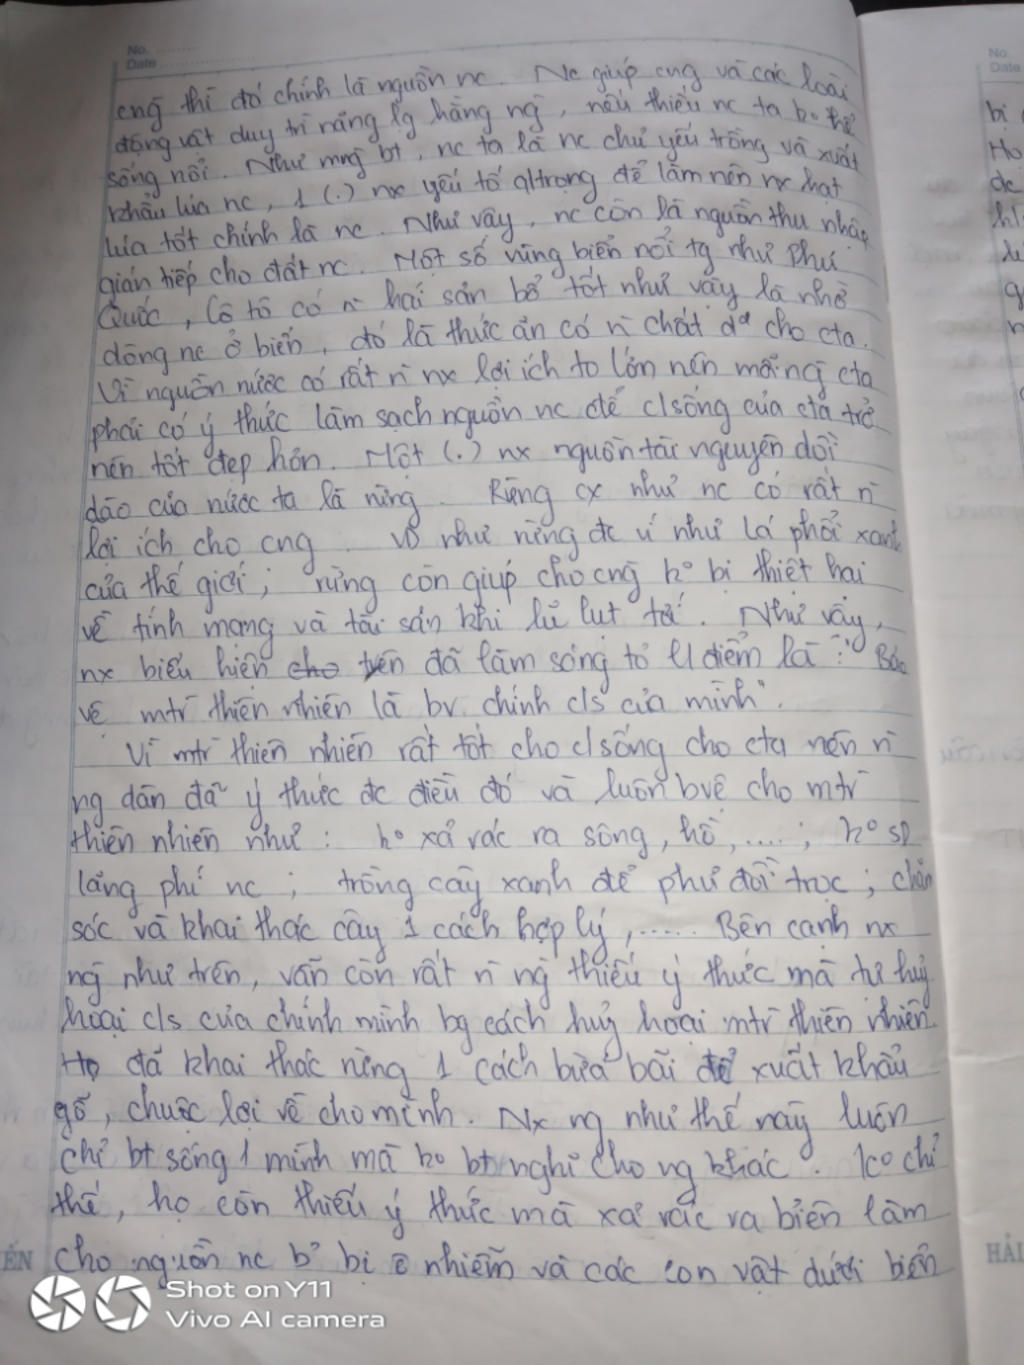 No.
Date
cng thì đó chính là nguồn nc. Nc giúp cng và các loài
động vật duy trì năng lg hằng ng, nếu thiếu nc ta ko thể
sống nổi. Như mng bt, nc ta là nc chủ yếu trồng và xuất
khẩu lúa nc, 1 (.) nx yếu tố qltrọng để làm nên nx hạt
lúa tốt chính là nc. Như vậy, nc còn là nguồn thu nhập
gián tiếp cho đất nc. Một số vùng biển nổi tg như Phú
Quốc, Cô tô có n hải sản bổ tốt như vậy là nhờ
dòng nc ở biển, đó là thức ăn có n chất d² cho cta.
Vì nguồn nước có rất n nx lợi ích to lớn nên mỗi ng cta
phải có ý thức làm sạch nguồn nc để c/sống của cta trở
nên tốt đẹp hơn. Một (.) nx nguồn tài nguyên dồi
dào của nước ta là rừng. Rừng cx như nc có rất n
lợi ích cho cng. Vd như rừng đc ví như lá phổi xanh
của thế giới; rừng còn giúp cho cng ko bị thiệt hại
về tính mạng và tài sản khi lũ lụt tới. Như vậy,
nx biểu hiện cho trên đã làm sáng tỏ l/điểm là: "Bảo
vệ mtr thiên nhiên là bv chính c/s của mình".
Vì mtr thiên nhiên rất tốt cho c/sống cho cta nên n
ng dân đã ý thức đc điều đó và luôn bvệ cho mtr
thiên nhiên như: ko xả rác ra sông, hồ,....; ko sD
lãng phí nc; trồng cây xanh để phủ đồi trọc; chăm
sóc và khai thác cây 1 cách hợp lý,..... Bên cạnh nx
ng như trên, vẫn còn rất n ng thiếu ý thức mà tự huỷ
hoại c/s của chính mình bg cách huỷ hoại mtr thiên nhiên.
Họ đã khai thác rừng 1 cách bừa bãi để xuất khẩu
gỗ, chuộc lợi về cho mình. Nx ng như thế này luôn
chỉ bt sống 1 mình mà ko bt nghĩ cho ng khác. Ko chỉ
thế, họ còn thiếu ý thức mà xả rác ra biển làm
cho nguồn nc bị ô nhiễm và các con vật dưới biển
Shot on Y11
Vivo AI camera
No.
Date
bị
Ho
đc
ẾN
HẢI